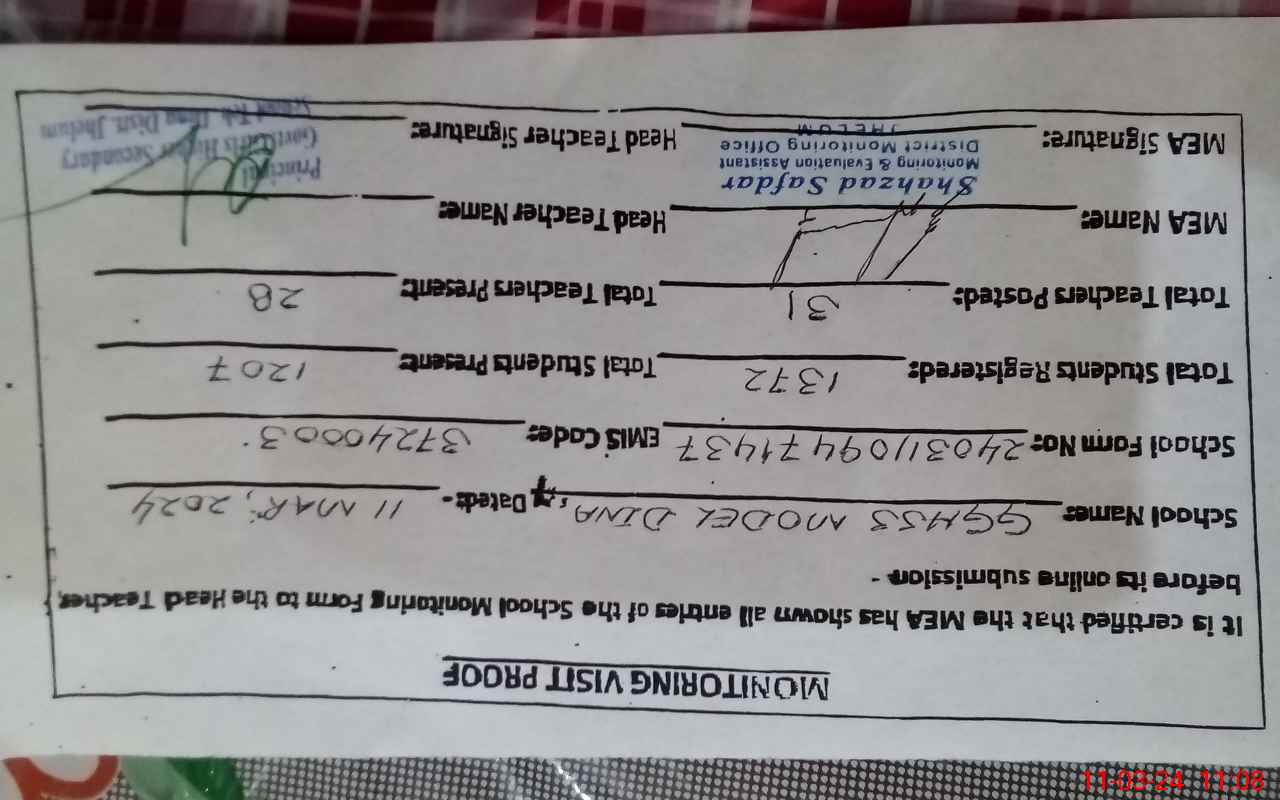 MONITORING VISIT PROOF
It is certified that the MEA has shown all entries of the School Monitoring Form to the Head Teacher,
before its online submission -
School Name: GGHSS MODEL DINA, Dated: - 11 MAR, 2024
School Form No: 24031109471437 EMIS Code: 37240003
Total Students Registered: 1372 Total Students Present: 1207
Total Teachers Posted: 31 Total Teachers Present: 28
MEA Name: Head Teacher Name:
Shahzad Safdar
Monitoring & Evaluation Assistant
District Monitoring Office
JHELUM
Principal
Govt. Girls Higher Secondary
School Teh. Dina Distt. Jhelum
MEA Signature: Head Teacher Signature:
11-03-24 11:08